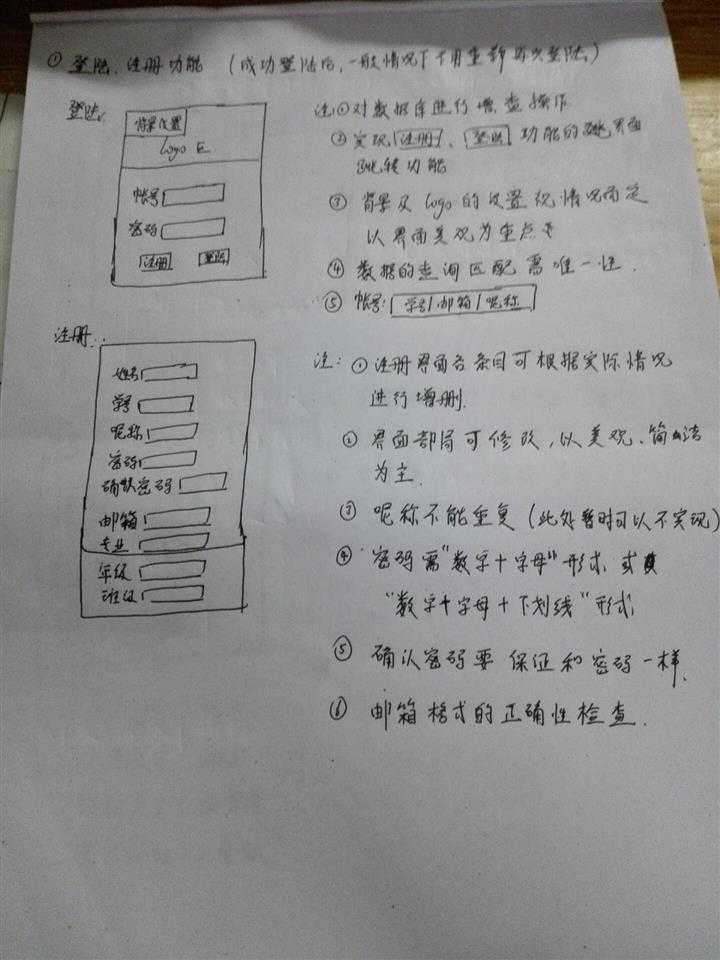 ① 登陆、注册功能 (成功登陆后,一般情况下不用重新再次登陆)
登陆:
背景设置
logo 区
帐号
密码
注册 登陆
注:①对数据库进行增、查操作
②实现 注册、登陆 功能的跳界面
跳转功能
③ 背景及logo的设置视情况而定
以界面美观为重点
④ 数据的查询匹配需唯一性.
⑤ 帐号: 学号/邮箱/昵称
注册:
姓名
学号
昵称
密码
确认密码
邮箱
专业
年级
班级
注: ①注册界面各条目可根据实际情况
进行增删.
② 界面部局可修改,以美观、简洁
为主.
③ 昵称不能重复(此处暂时可以不实现)
④ 密码需"数字+字母"形式 或
"数字+字母+下划线"形式
⑤ 确认密码要保证和密码一样.
⑥ 邮箱格式的正确性检查.